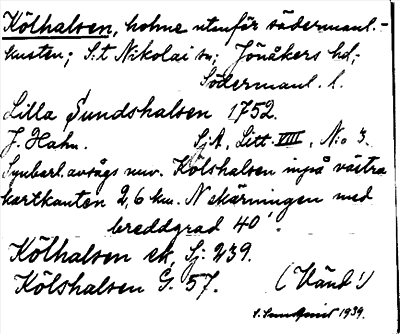 Kölhalsen, holme utmför södermanl.-
kusten; S:t Nikolai sn; Jönåkers hd;
Södermanl. l.
Lilla Sundshalsen 1752.
J. Hahn. SjA, Litt. VIII, N:o 3.
Synbarl. avsågs nuv. Kölshalsen inpå västra
kartkanten 2,6 km. N skärningen med
breddgrad 40'.
Kölhalsen ek, Sj: 239.
Kölshalsen G. 57. (Vänd!)
1939.